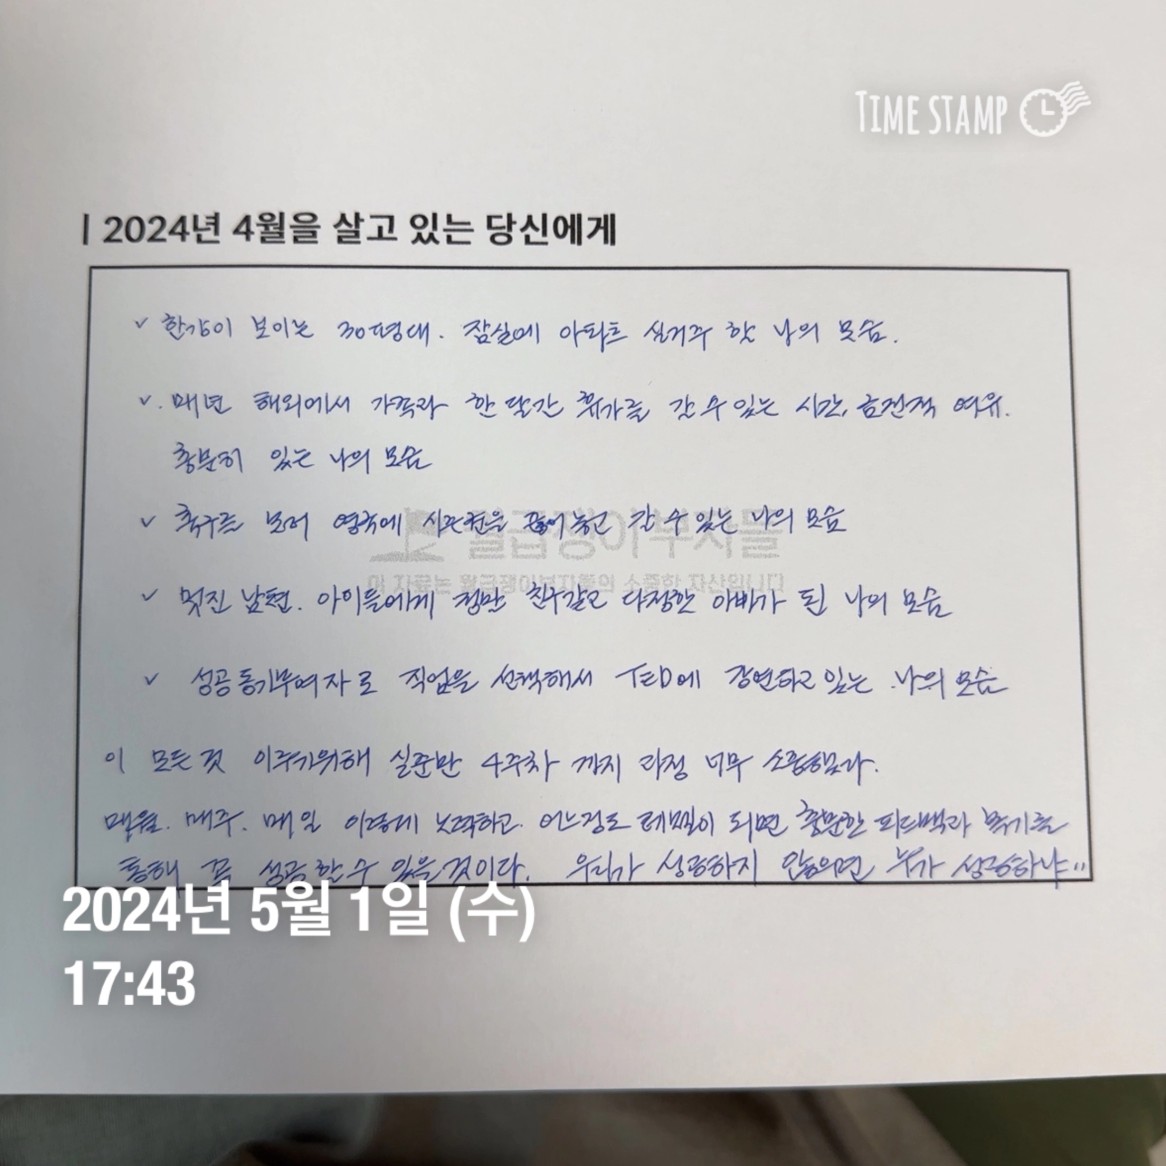 TIME STAMP
| 2024년 4월을 살고 있는 당신에게
✓ 한강이 보이는 30평대. 잠실에 아파트 실거주 한 나의 모습.
✓. 매년 해외에서 가족과 한 달간 휴가를 갈 수 있는 시간, 금전적 여유.
충분히 있는 나의 모습
✓ 축구를 보러 영국에 시즌권을 끊어 놓고 갈 수 있는 나의 모습
월급쟁이부자들
이 자료는 월급쟁이부자들의 소중한 자산입니다
✓ 멋진 남편. 아이들에게 정말 친구같고 다정한 아빠가 된 나의 모습
✓ 성공 동기부여자로 직업을 선택해서 TED에 강연하고 있는 나의 모습
이 모든 것 이루기위해 실준반 4주차 까지 과정 너무 소중했다.
매월. 매주. 매일 이렇게 노력하고. 어느정도 레벨이 되면 충분한 피드백과 복기를
통해 꼭 성공할 수 있을 것이다. 우리가 성공하지 않으면 누가 성공하냐"
2024년 5월 1일 (수)
17:43